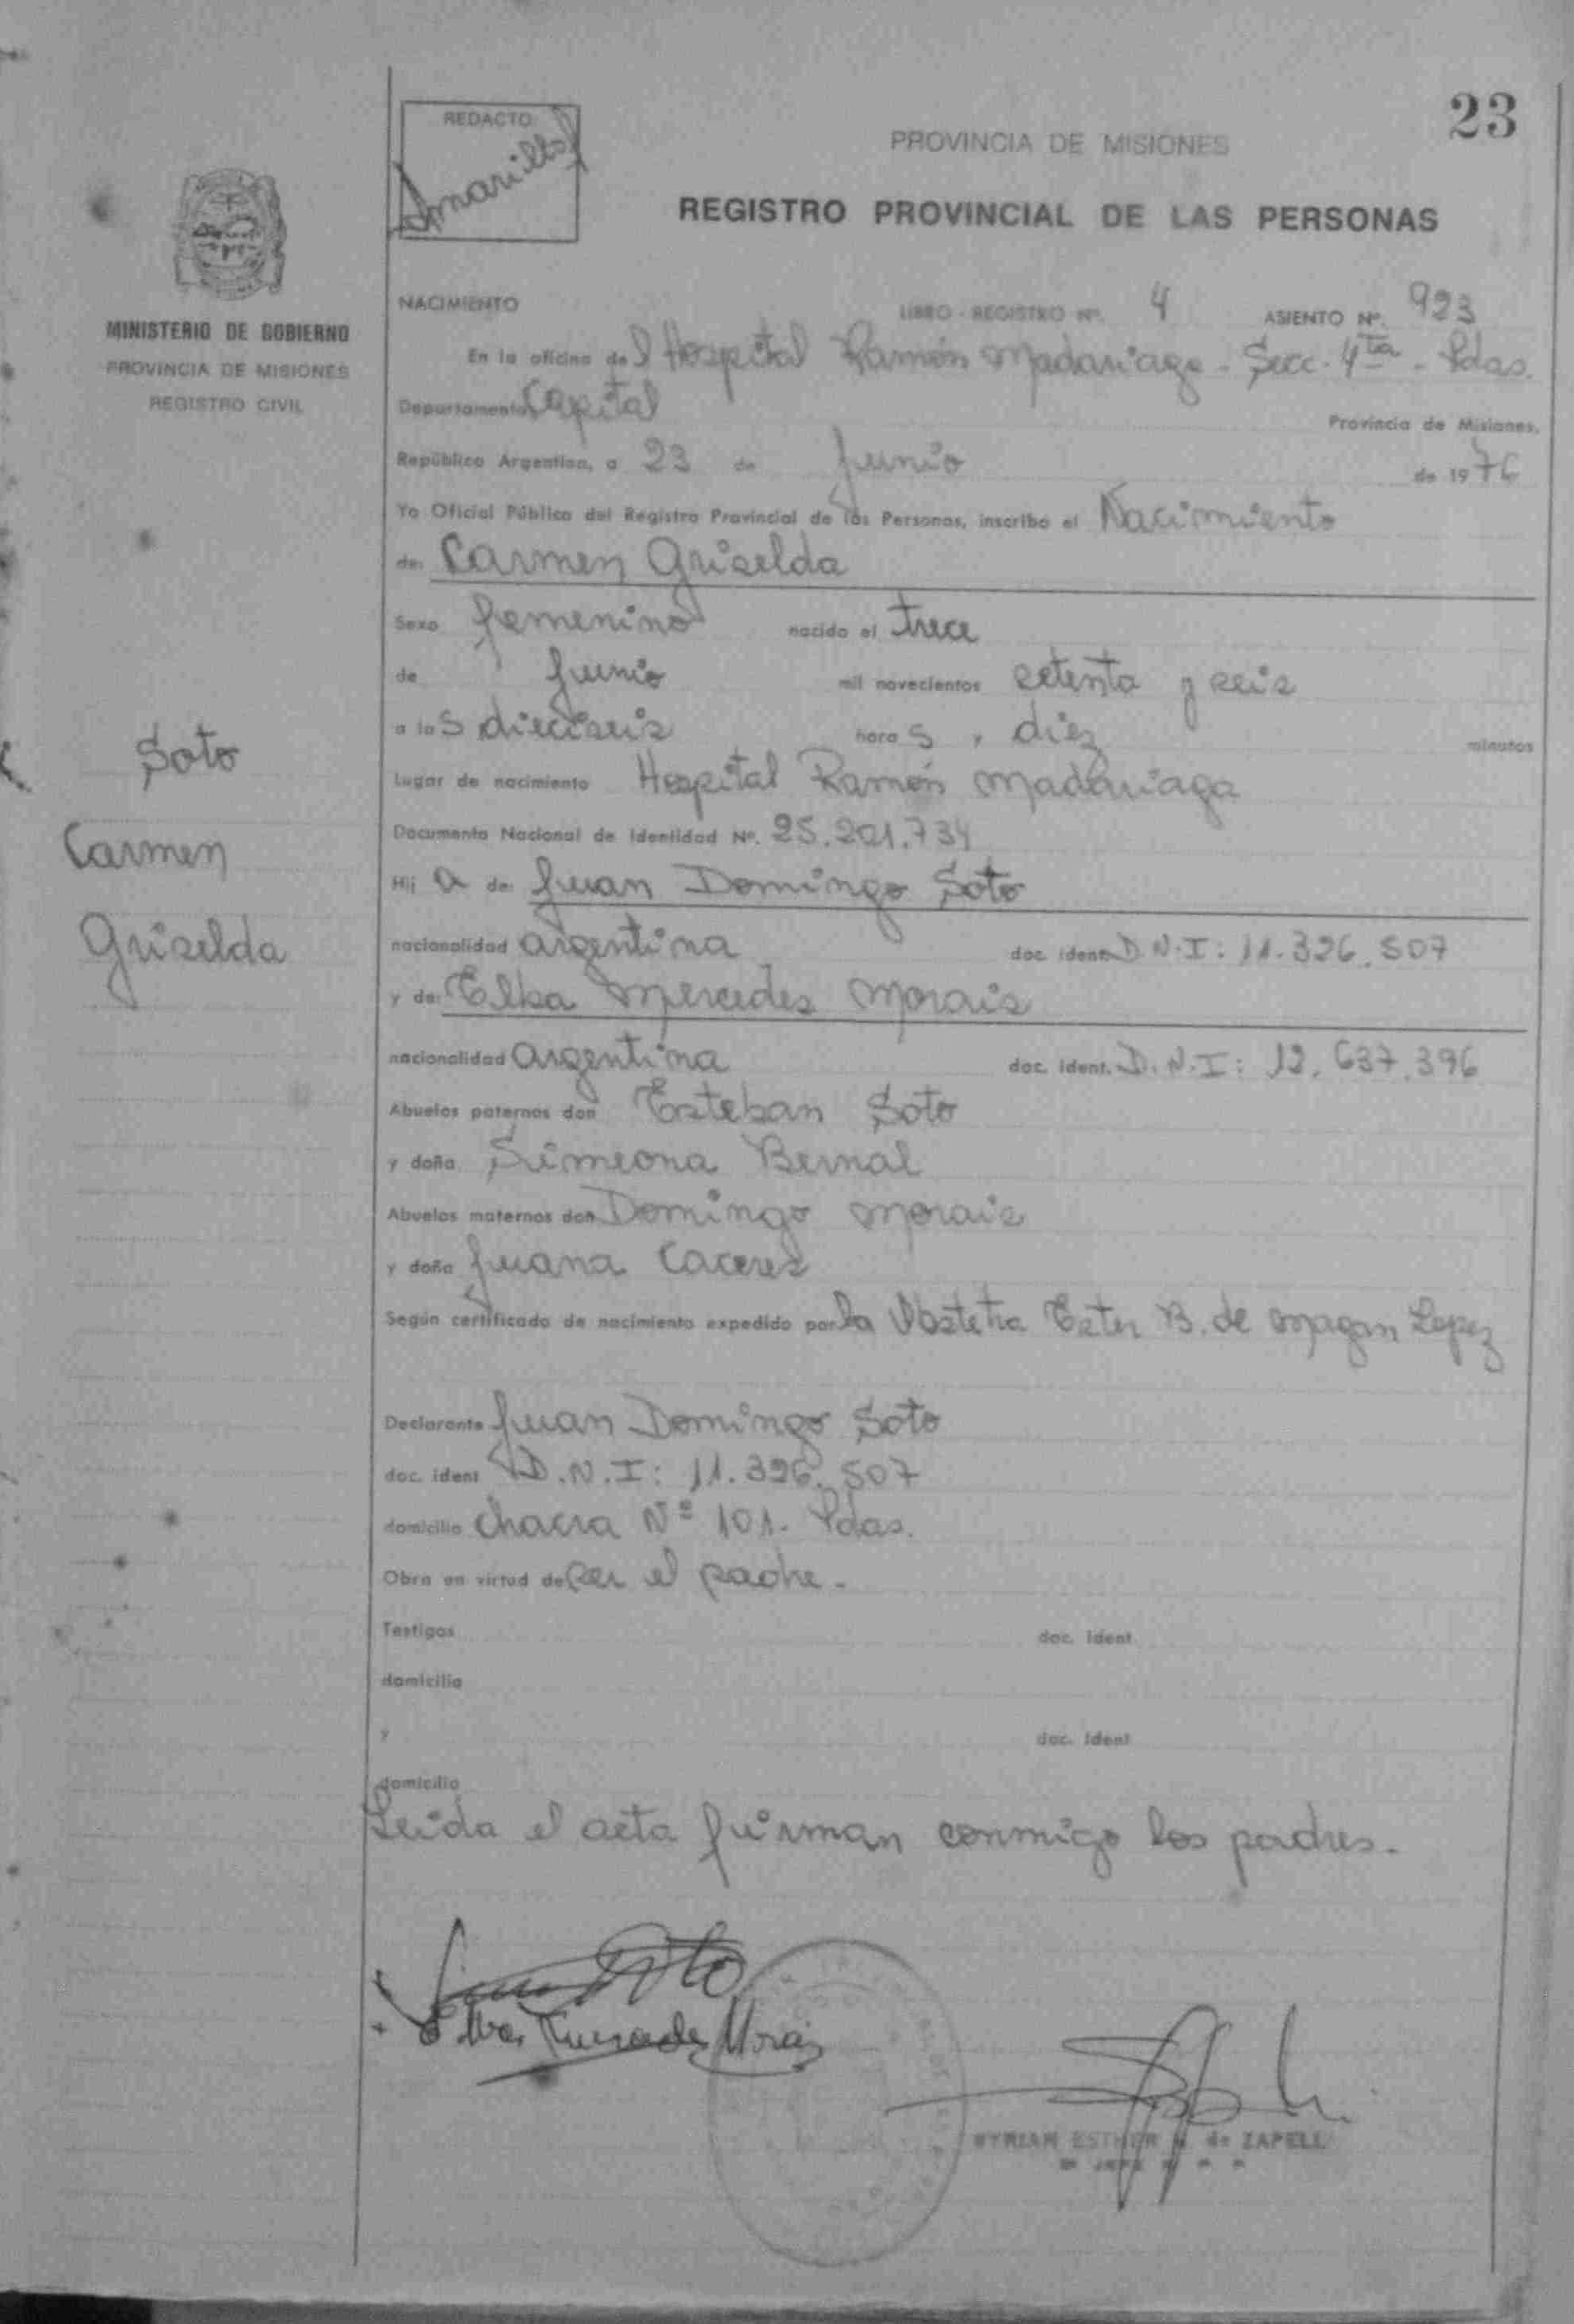 23
REDACTO
Amarilla
PROVINCIA DE MISIONES
REGISTRO PROVINCIAL DE LAS PERSONAS
MINISTERIO DE GOBIERNO
PROVINCIA DE MISIONES
REGISTRO CIVIL
NACIMIENTO LIBRO - REGISTRO Nº. 4 ASIENTO Nº. 923
En la oficina del Hospital Ramón Madariaga - Secc. 4ta - Pdas.
Departamento Capital Provincia de Misiones,
República Argentina, a 23 de Junio de 1976
Yo Oficial Público del Registro Provincial de las Personas, inscribo el Nacimiento
de: Carmen Griselda
Sexo femenino nacido el trece
de Junio mil novecientos setenta y seis
a las dieciseis horas y diez minutos
Lugar de nacimiento Hospital Ramón Madariaga
Documento Nacional de Identidad Nº. 25.201.734
Hija de: Juan Domingo Soto
nacionalidad argentina doc. ident. D.N.I: 11.326.507
y de: Elba Mercedes Morais
nacionalidad argentina doc. ident. D.N.I: 12.637.396
Abuelos paternos don Esteban Soto
y doña Simeona Bernal
Abuelos maternos don Domingo Morais
y doña Juana Caceres
Según certificado de nacimiento expedido por la Obstetra Ester B. de Magan Lopez
Declarante Juan Domingo Soto
doc. ident D.N.I: 11.326.507
domicilio Chacra Nº 101. Pdas.
Obra en virtud de ser el padre.-
Testigos doc. ident
domicilio
y doc. ident
domicilio
Leida el acta firman conmigo los padres.-
Soto
Carmen
Griselda
Juan Soto
Elba Mercedes Morais
MYRIAN ESTHER de ZAPELLI